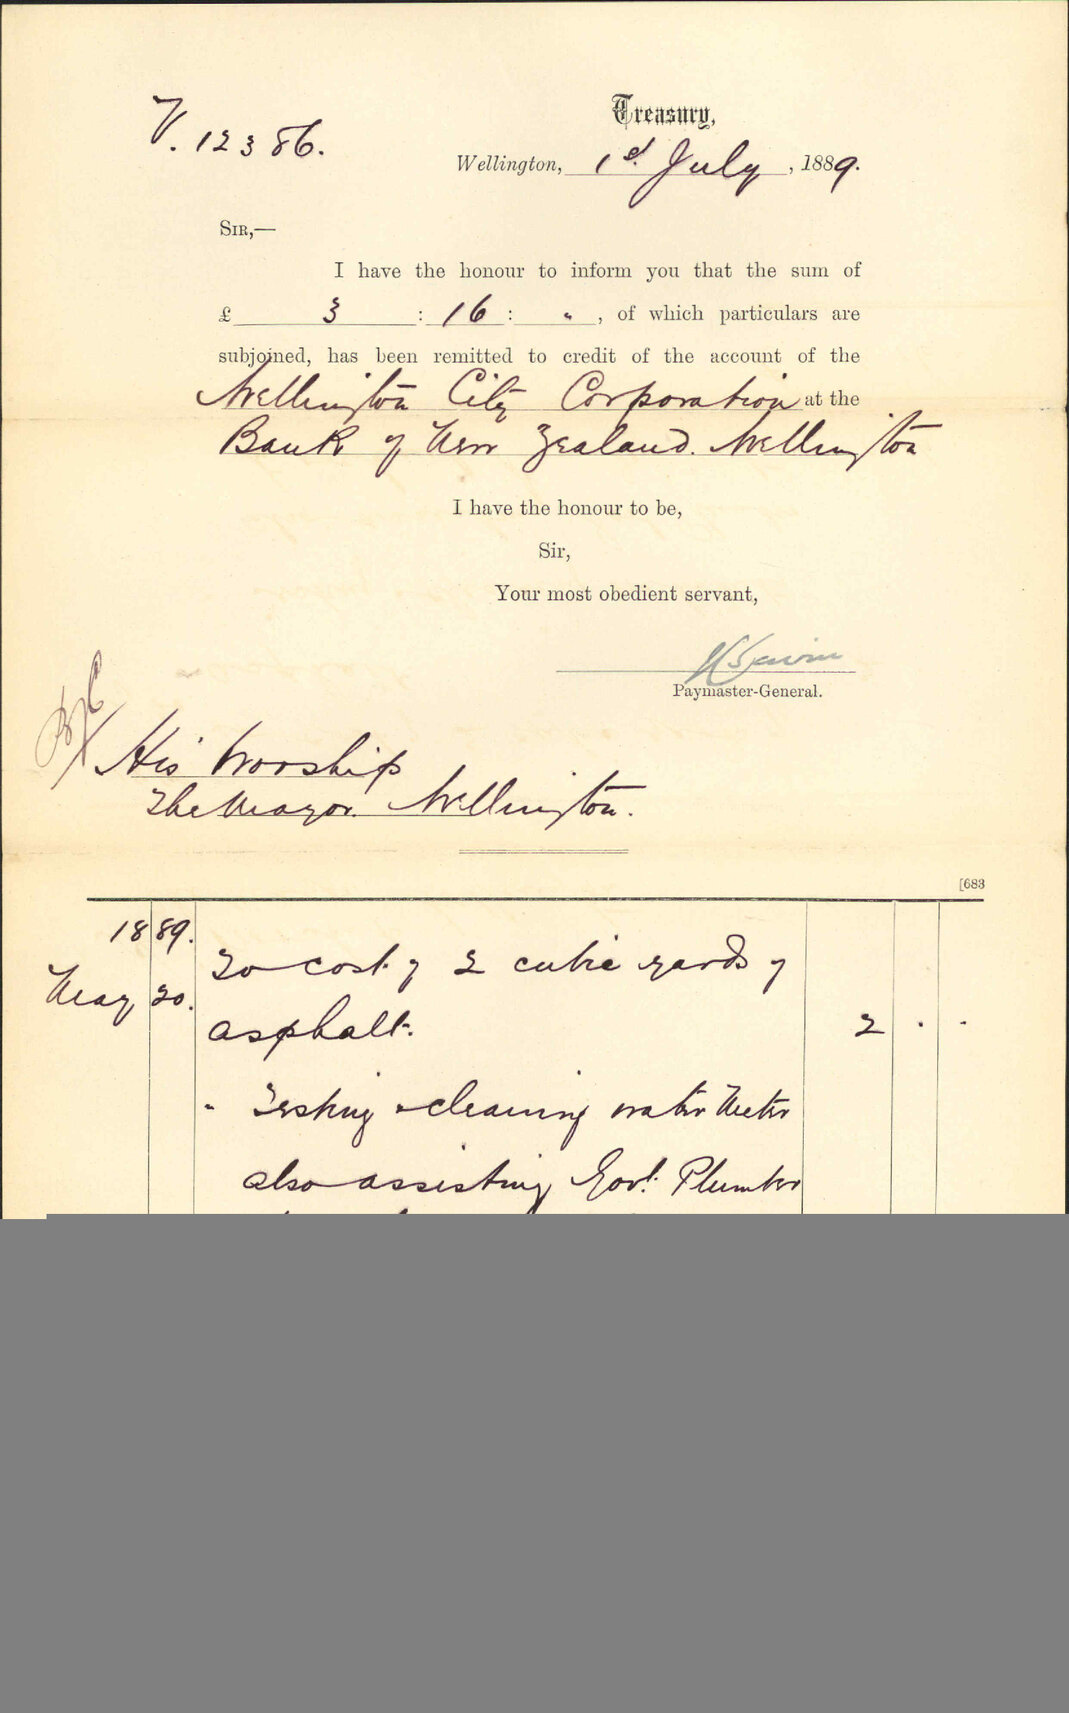 V. 12386.
Treasury,
Wellington, 1st July, 1889.
SIR,—
I have the honour to inform you that the sum of
£ 3 : 16 : " , of which particulars are
subjoined, has been remitted to credit of the account of the
Wellington City Corporation at the
Bank of New Zealand. Wellington
I have the honour to be,
Sir,
Your most obedient servant,
Paymaster-General.
His Worship
The Mayor. Wellington.
[683
1889.
May 20. To cost of 2 cubic yards of
asphalt. 2 . .
" Testing & cleaning water Meter
also assisting Govt. Plumber